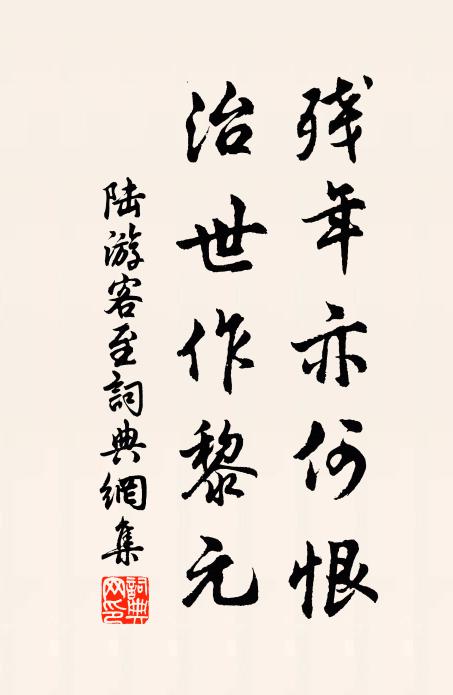 残年亦何恨
治世作黎元
陆游客至詞典網集
詞典网印